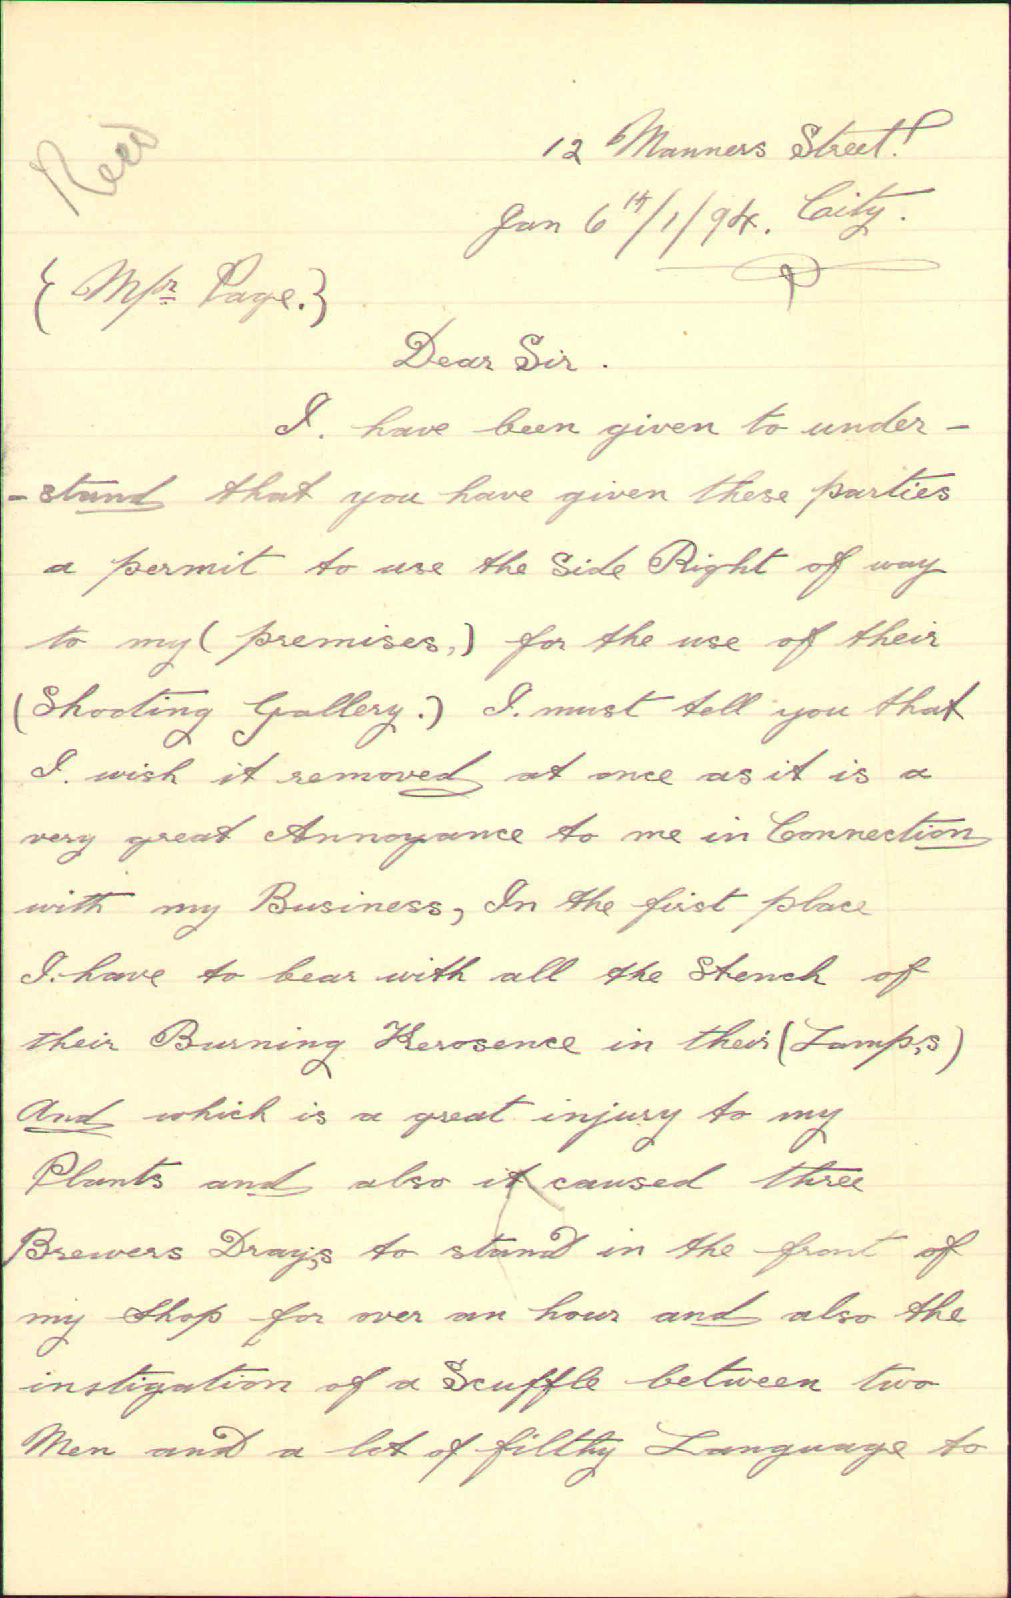 Recd
12 Manners Street.
Jan 6th/1/94. City.
{ Mr Page. }
Dear Sir.
I. have been given to under-
-stand that you have given these parties
a permit to use the Side Right of way
to my ( premises, ) for the use of their
(Shooting Gallery.) I. must tell you that
I. wish it removed at once as it is a
very great Annoyance to me in Connection
with my Business, In the first place
I. have to bear with all the Stench of
their Burning Kerosence in their (Lamp,s)
And which is a great injury to my
Plants and also it caused three
Brewers Dray,s to stand in the front of
my shop for over an hour and also the
instigation of a Scuffle between two
Men and a lot of filthy Language to